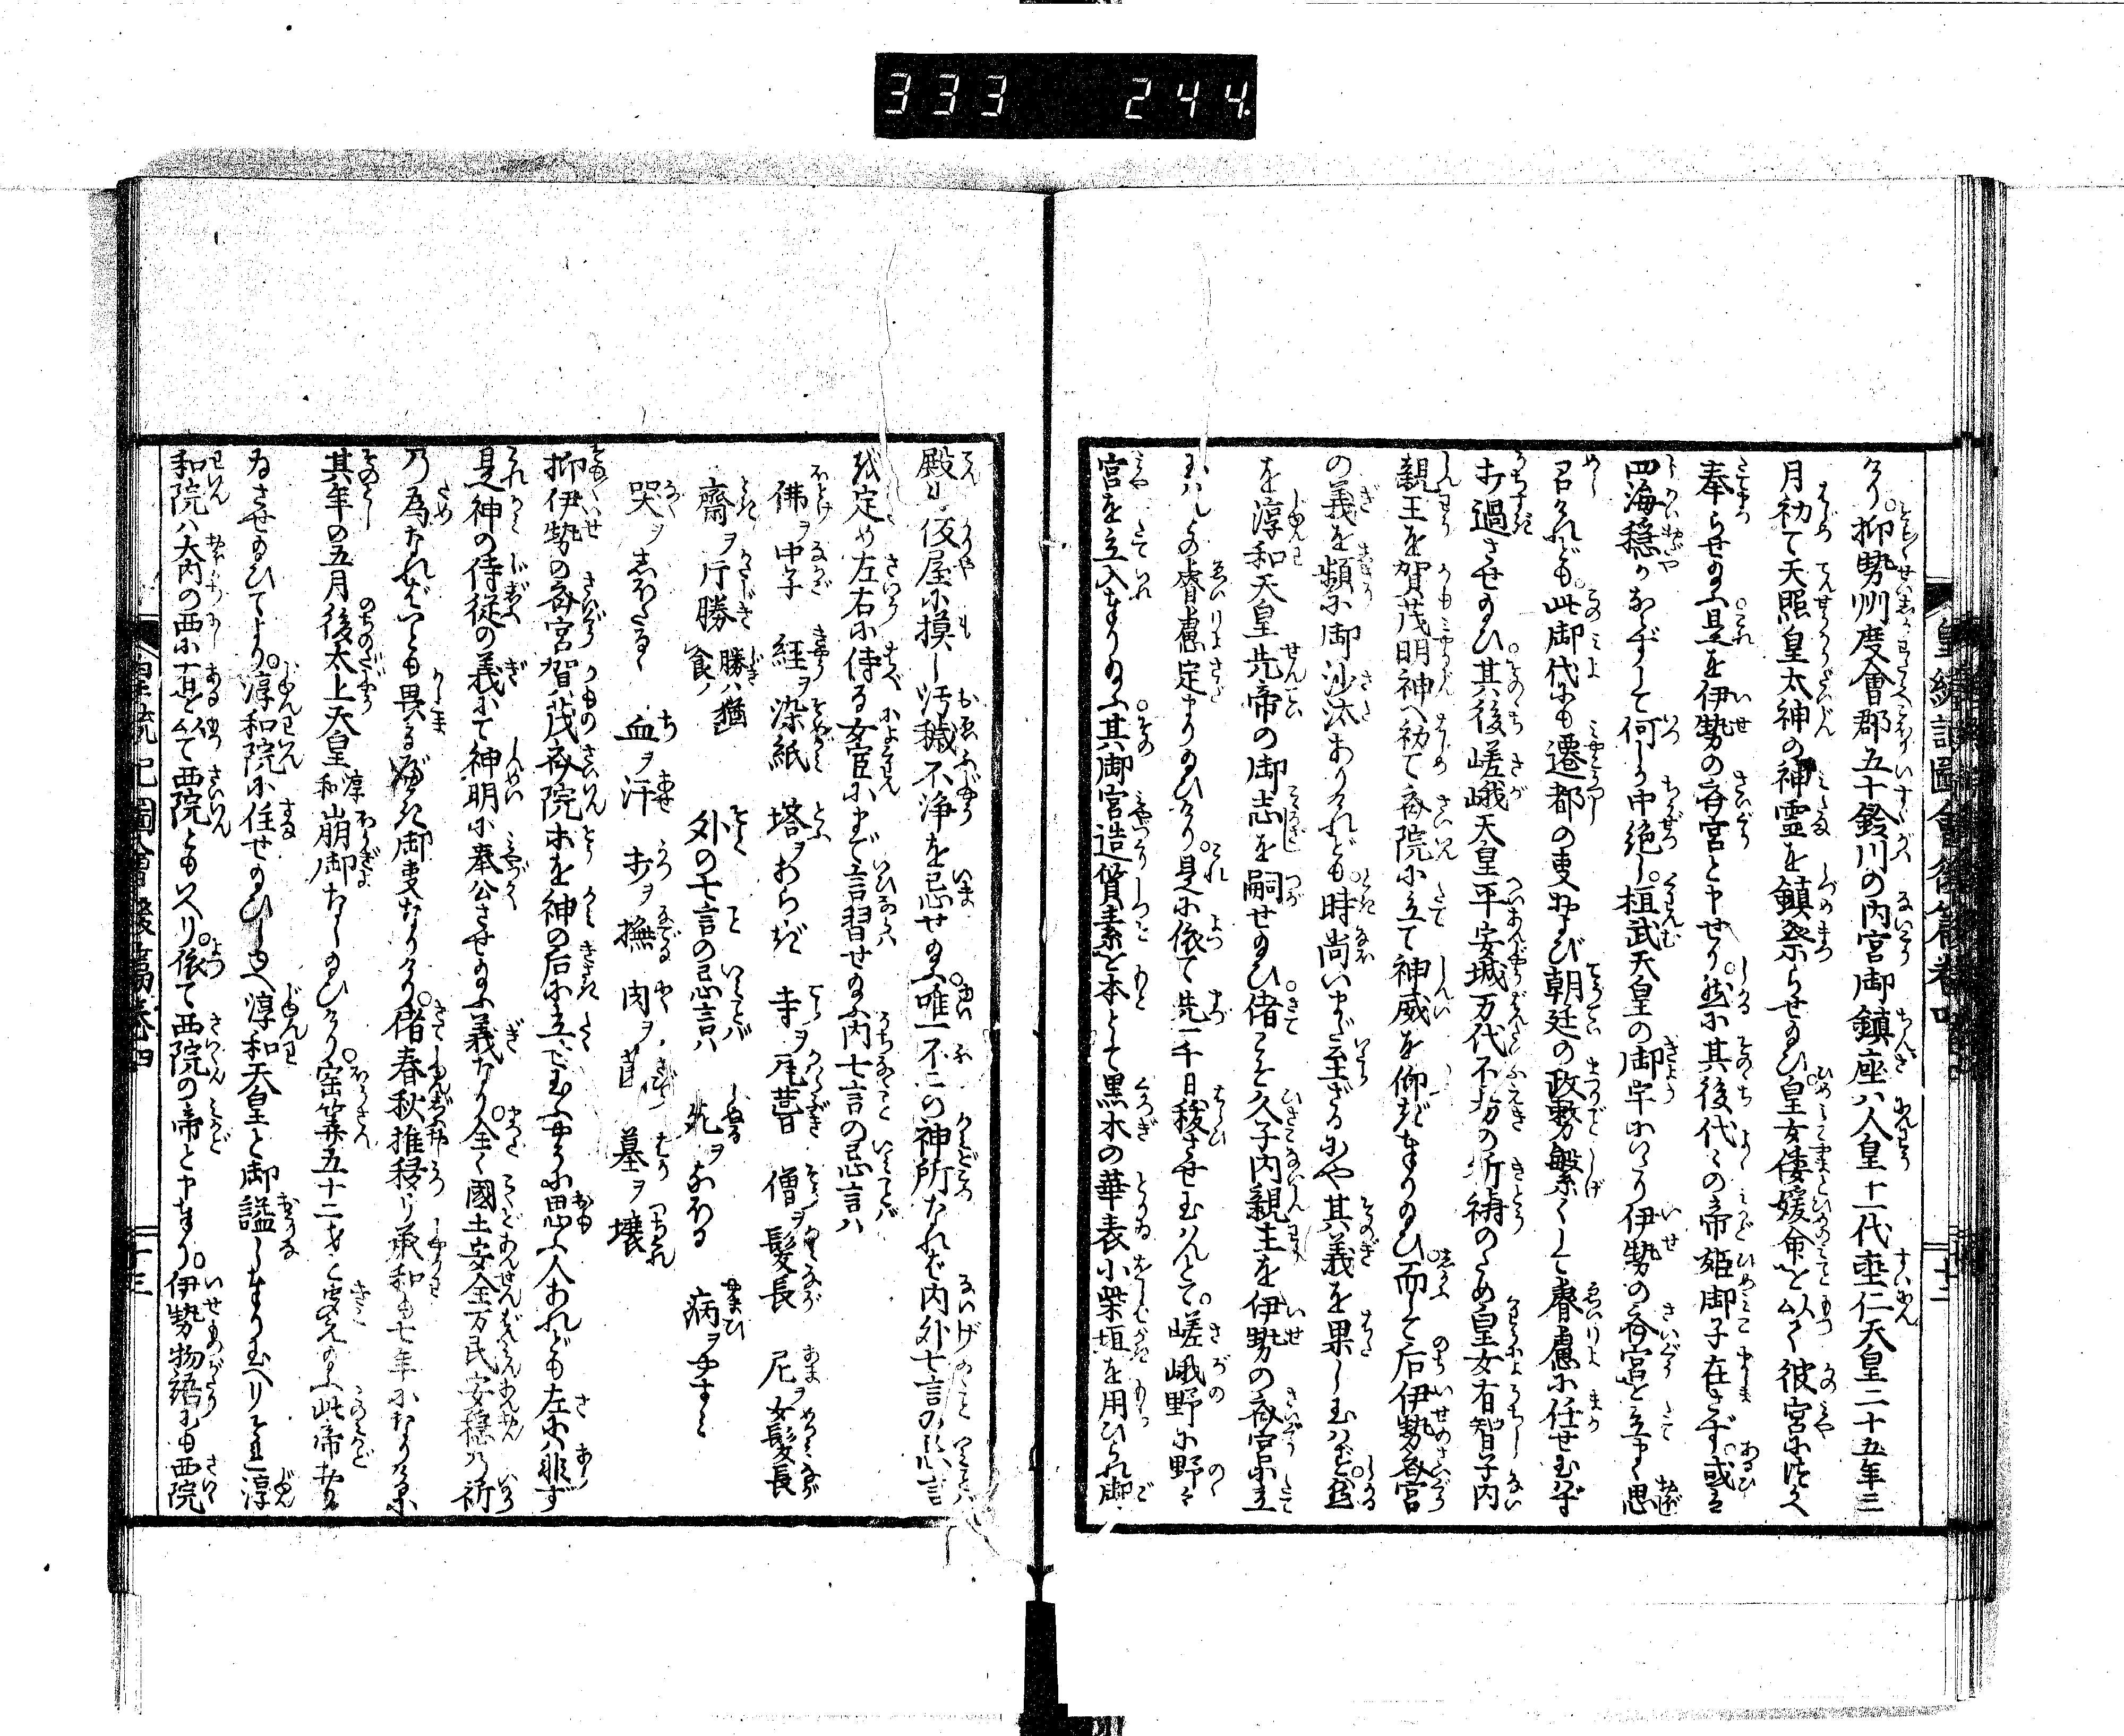 333 244
けり。抑勢州度會郡五十鈴川の内宮御鎮座ハ人皇十一代垂仁天皇二十五年三
月初て天照皇太神の神霊を鎮祭らせ給ひ。皇女倭媛命を以て彼宮に仕へ
奉らせ給ふ。是を伊勢の斎宮と申せり。然に其後代々の帝姫御子在さず。或は
四海穏かならずして何しか中絶し。桓武天皇の御宇にいたり伊勢の斎宮を立まく思
召けれども。此御代にも遷都の事および朝廷の政務繁くして睿慮に任せ玉はず
打過させ給ひ。其後嵯峨天皇平安城万代不易の祈祷のため皇女有智子内
親王を賀茂明神へ初て斎院に立て神威を仰ぎ奉り給ひ。而して后伊勢斎宮
の義を頻に御沙汰ありけれども。時尚いまだ至ざるにや其義を果し玉はず。然
を淳和天皇先帝の御志を嗣せ給ひ。偖こそ久子内親王を伊勢の斎宮に立
玉はしめ睿慮定まり給ひけり。是に依て先一千日秡させ玉はんとて。嵯峨野に野々
宮を立入奉り給ふ。其御宮造質素を本として黒木の華表小柴垣を用ひられ御
殿は仮屋に摸し汚穢不浄を忌せ給ふ。唯一不二の神所なれば内外七言の忌言
を定め左右に侍る女官にまで言習せ給ふ内七言の忌言ハ
佛ヲ中子 経ヲ染紙 塔ヲあらゝぎ 寺ヲ瓦葺 僧ヲ髪長 尼ヲ女髪長
齋ヲ片勝 勝ハ猶食ノ 外の七言の忌言ハ 死ヲなほる 病ヲやすミ
哭ヲしほたるゝ 血ヲ汗 打ヲ撫 肉ヲ菌 墓ヲ壌
抑伊勢の斎宮賀茂斎院等を神の后に立て玉ふやうに思ふ人あれども左には非ず
是神の侍従の義にて神明に奉公させ給ふ義なり。全く國土安全万民安穏乃祈
乃為なればいとも畏るべき御事なりけり。偖春秋推移り承和も七年になりけるに
其年の五月後太上天皇淳和崩御なし給ひけり。宝算五十二才と聞え給ふ。此帝
ゐさせ給ひてより。淳和院に住せ給ひしゆへ淳和天皇と御謚し奉り玉へり。
和院ハ大内の西に在を以て西院ともいへり。依て西院の帝と申奉り。伊勢物語にも西院
皇統記圖會後篇巻四
十三